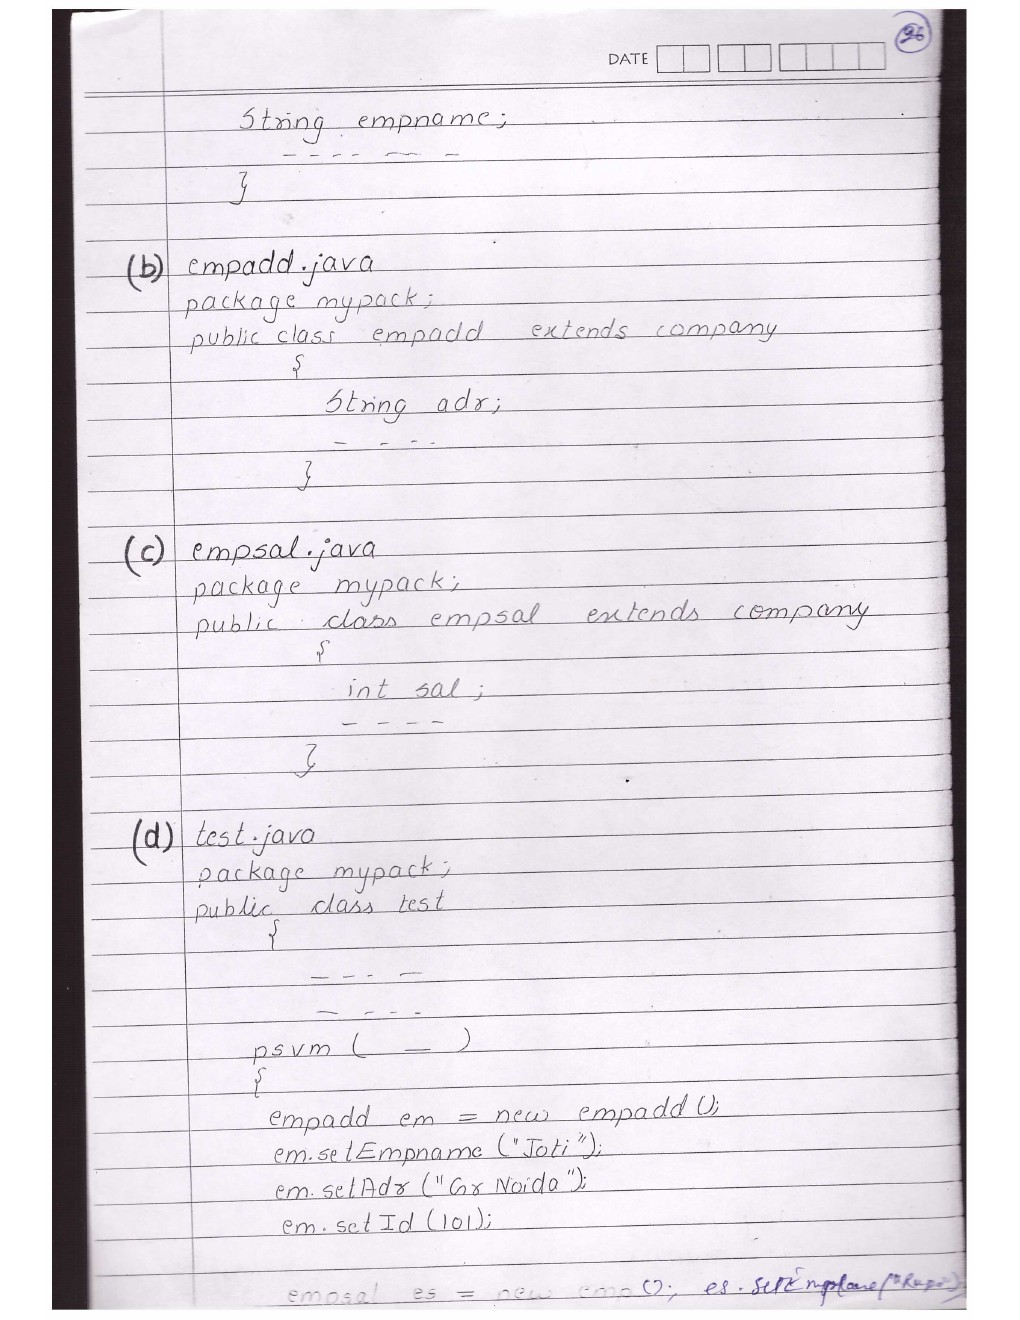 96
DATE
String empname;
- - - - - - -
}
(b) empadd.java
package mypack;
public class empadd extends company
{
String adr;
- - - -
}
(c) empsal.java
package mypack;
public class empsal extends company
{
int sal;
- - - -
}
(d) test.java
package mypack;
public class test
{
- - - -
- - - -
psvm ( — )
{
empadd em = new empadd ();
em.setEmpname ("Joti");
em.setAdr ("Gr Noida");
em.setId (101);
empsal es = new emp (); es.